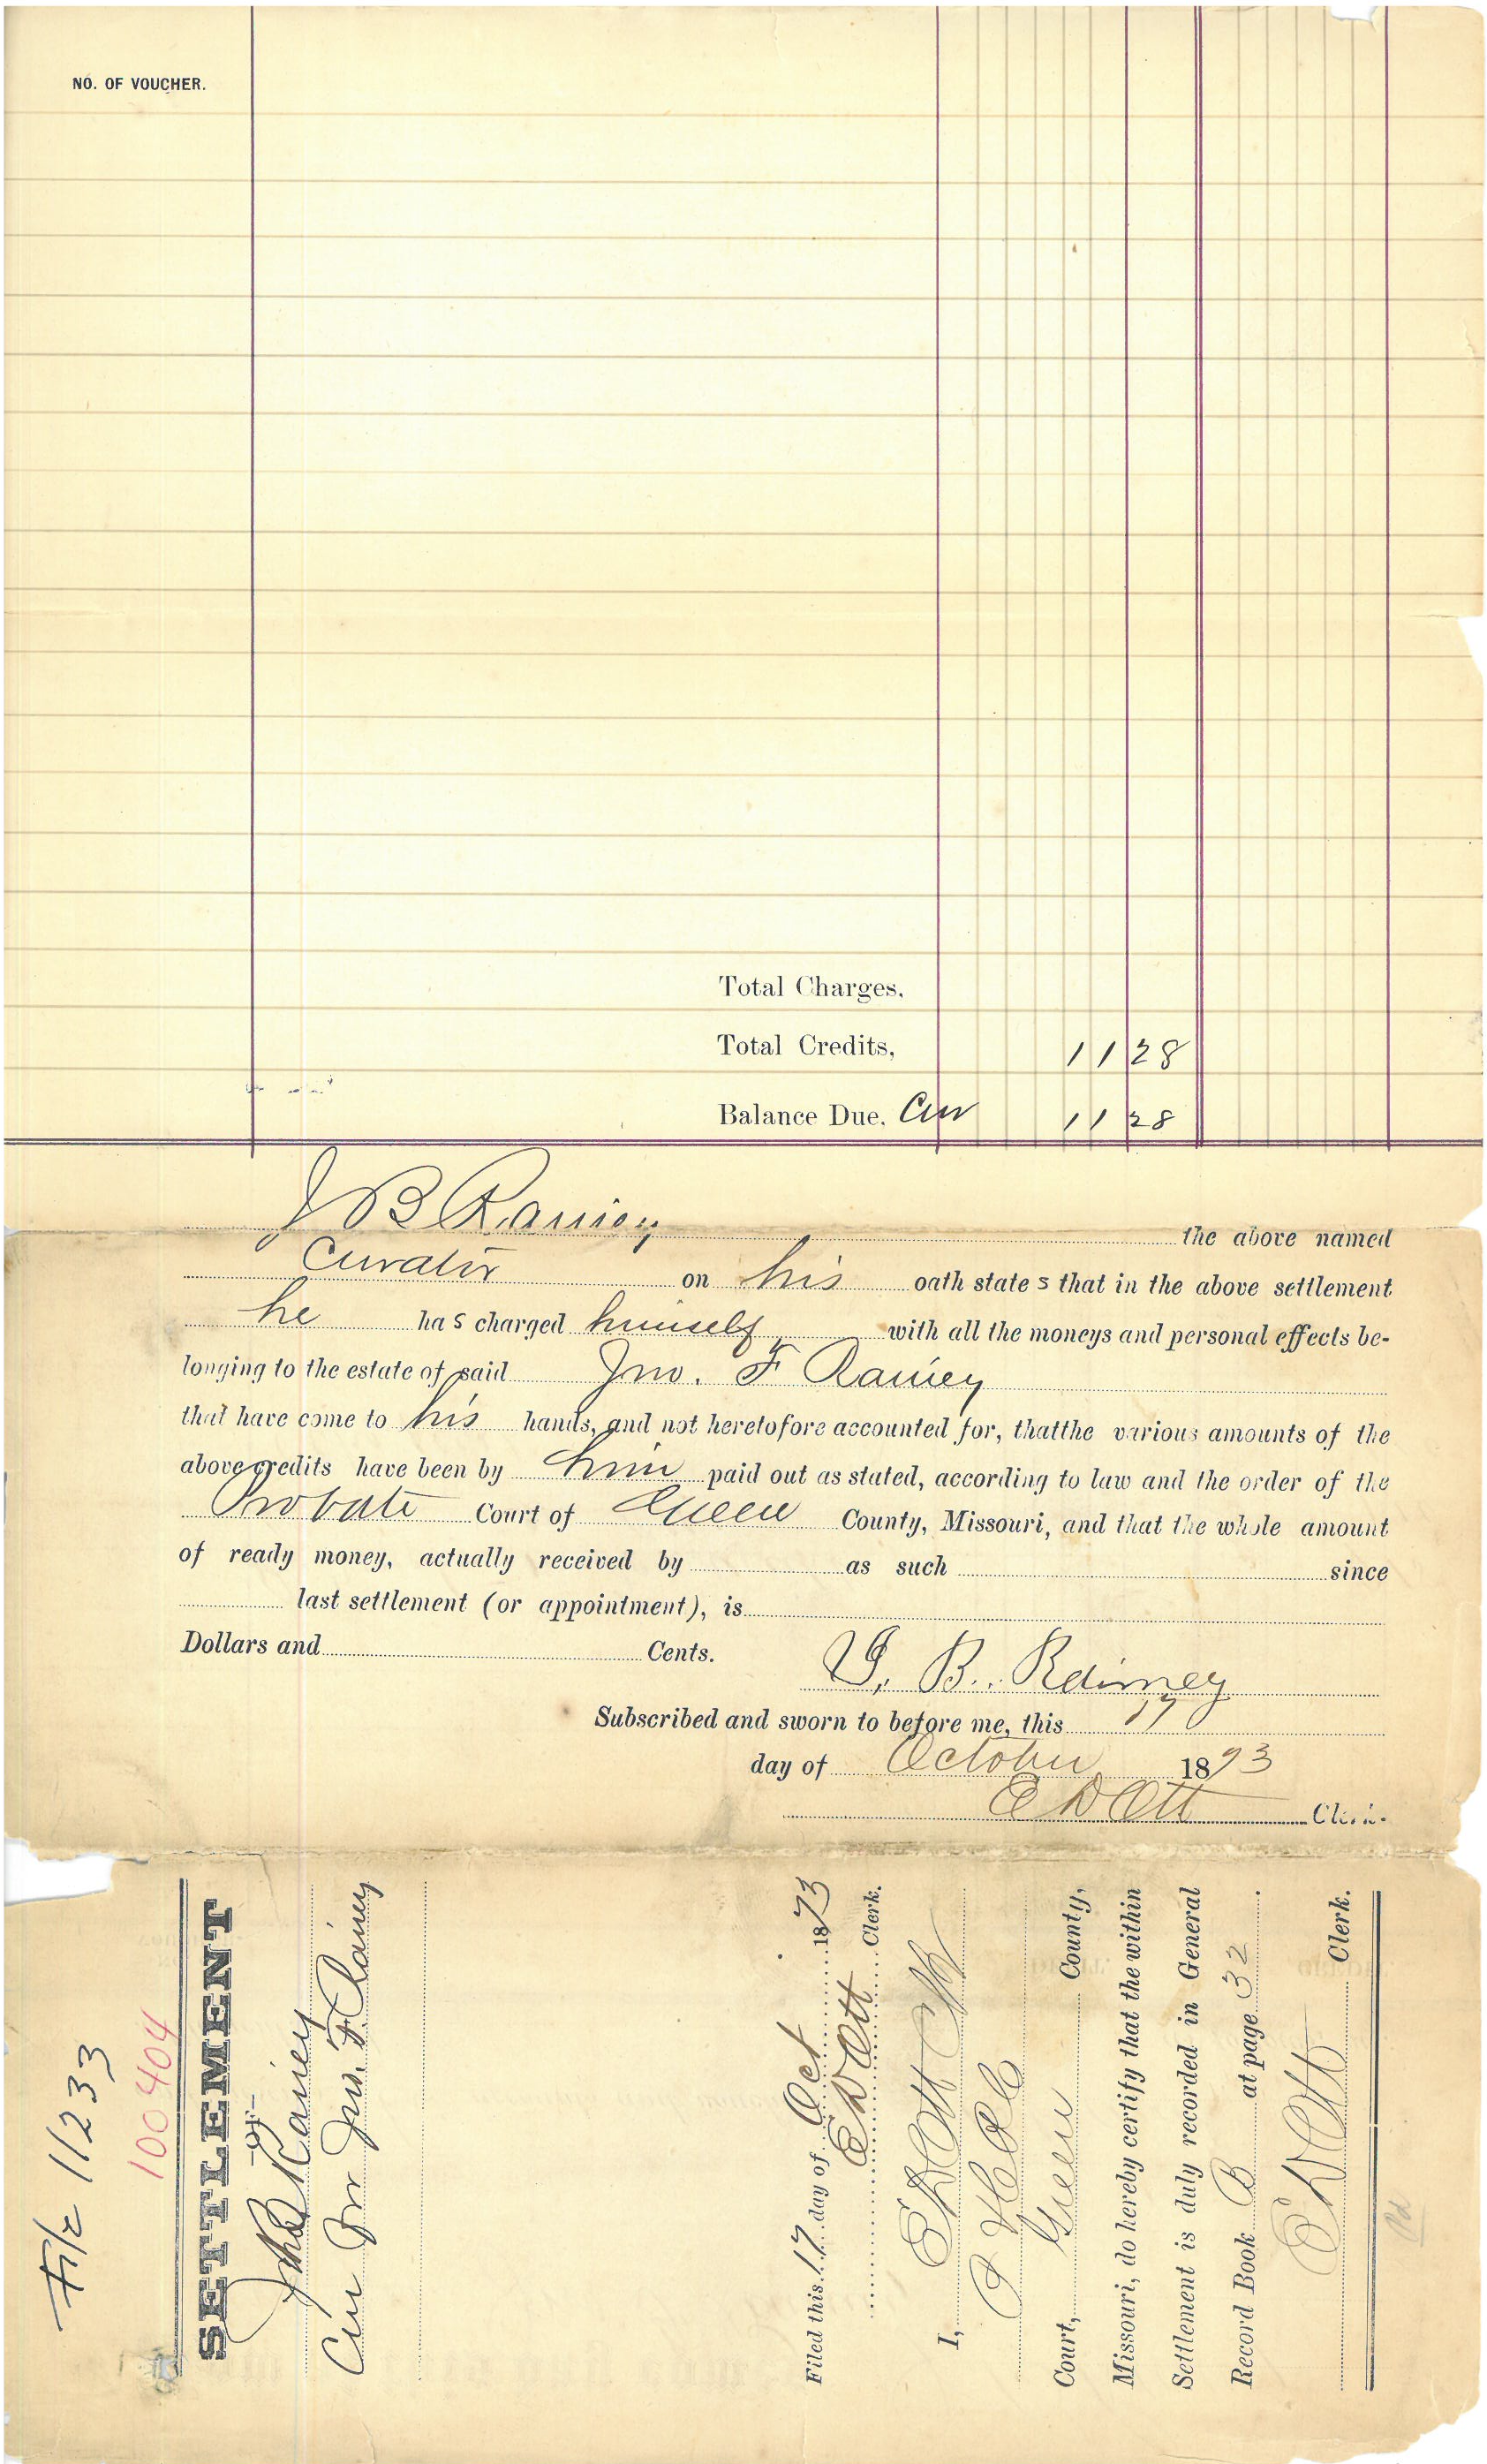 NO. OF VOUCHER.
Total Charges,
Total Credits, 11 28
Balance Due. Cur 11 28
J B Rainey the above named
Curator on his oath state s that in the above settlement
he ha s charged himself with all the moneys and personal effects be-
longing to the estate of said Jno. F Rainey
that have come to his hands, and not heretofore accounted for, thatthe various amounts of the
above credits have been by him paid out as stated, according to law and the order of the
Probate Court of Greene County, Missouri, and that the whole amount
of ready money, actually received by as such since
last settlement (or appointment), is
Dollars and Cents.
J. B. Rainey
Subscribed and sworn to before me, this 17
day of October 1893
E D Ott Clerk.
File 11233
100404
SETTLEMENT
—OF—
Jno B Rainey
Cur Jno. F. Rainey
Filed this 17 day of Oct 1893
E D Ott Clerk.
I, E D Ott Clk
Court, Greene County,
Missouri, do hereby certify that the within
Settlement is duly recorded in General
Record Book B at page 32.
E D Ott Clerk.